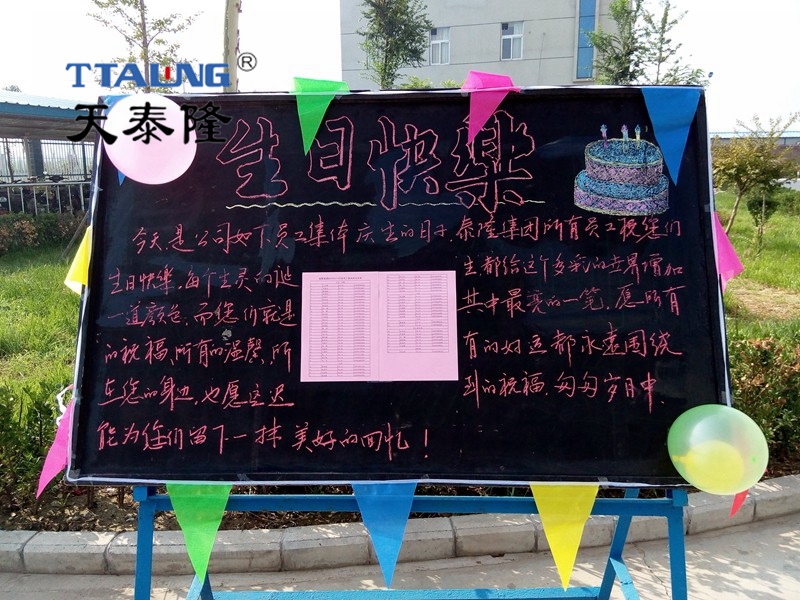 TTALUNG®
天泰隆
生日快樂
今天是公司如下员工集体庆生的日子,泰隆集团所有员工祝您们
生日快樂,每个生灵的诞生都给这个多彩的世界增加
一道颜色,而您们就是其中最亮的一笔,愿所有
的祝福,所有的温馨,所有的好运都永远围绕
在您的身边,也愿这迟到的祝福,匆匆岁月中
能为您们留下一抹美好的回忆!